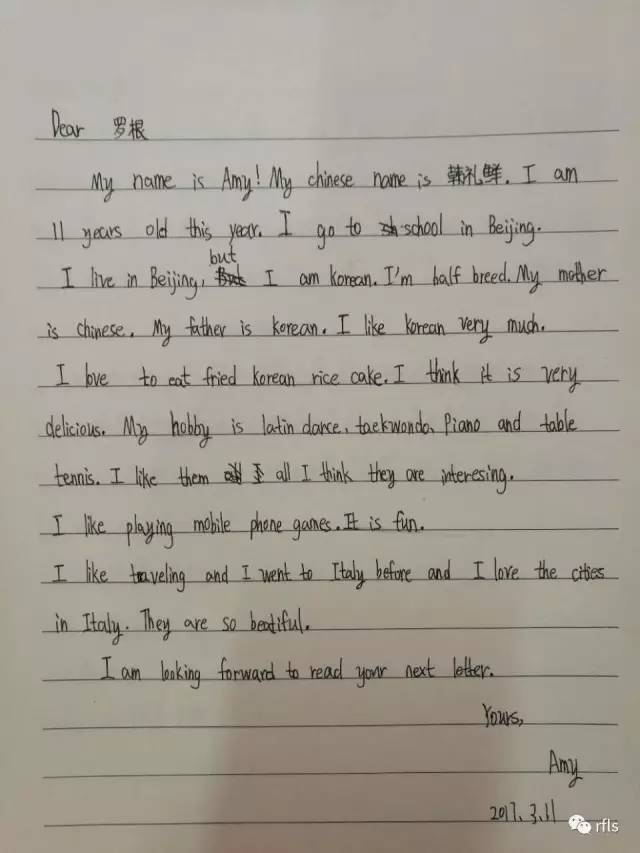 Dear 罗根
My name is Amy! My chinese name is 韩礼鲜. I am
11 years old this year. I go to school in Beijing.
I live in Beijing, but I am korean. I'm half breed. My mother
is chinese. My father is korean. I like korean very much.
I love to eat fried korean rice cake. I think it is very
delicious. My hobby is latin dance、taekwondo、Piano and table
tennis. I like them all I think they are interesing.
I like playing mobile phone games. It is fun.
I like traveling and I went to Italy before and I love the cities
in Italy. They are so beatiful.
I am looking forward to read your next letter.
Yours,
Amy
2017.3.11
rfls